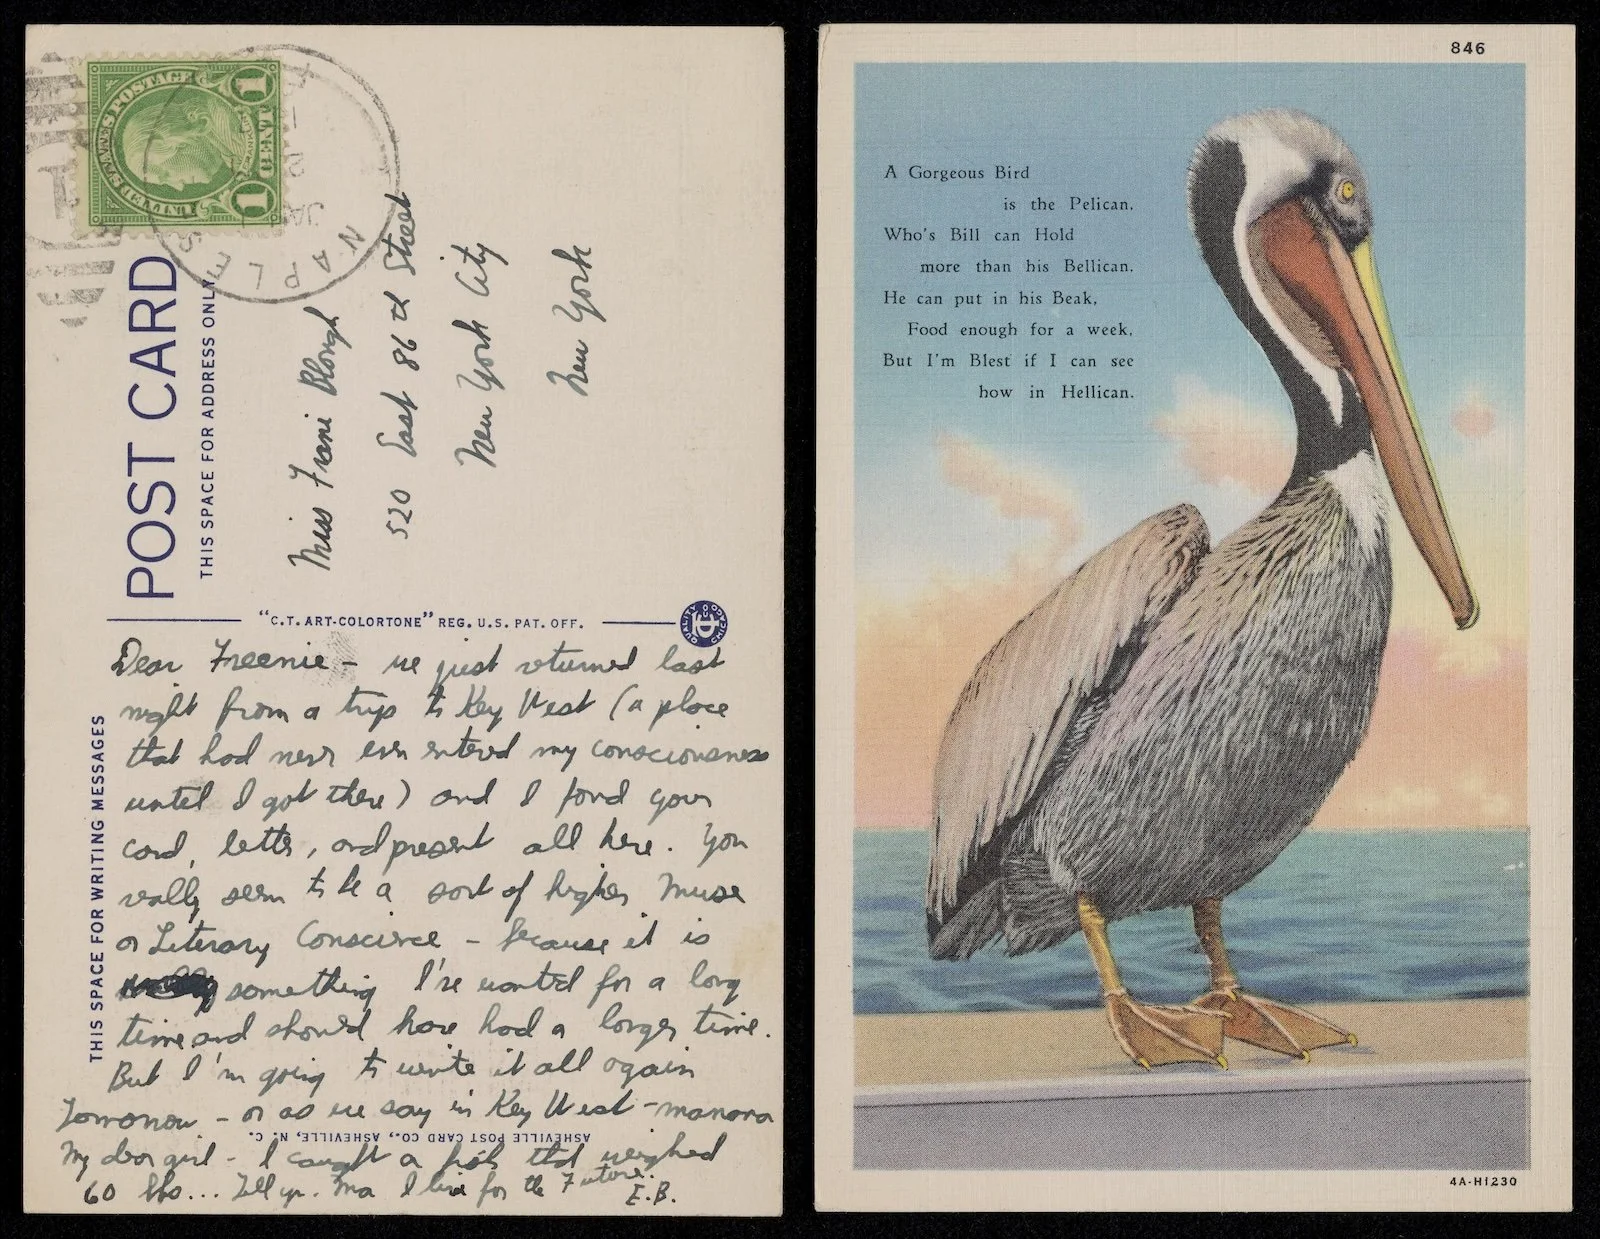 UNITED STATES POSTAGE
FRANKLIN
1 CENT 1
NAPLES
JA
2
1
POST CARD
THIS SPACE FOR ADDRESS ONLY
Miss Frani Blough
520 East 86th Street
New York City
New York
"C.T. ART-COLORTONE" REG. U.S. PAT. OFF.
QUALITY CHICAGO
THIS SPACE FOR WRITING MESSAGES
Dear Freenie - we just returned last
night from a trip to Key West (a place
that had never even entered my consciousness
until I got there) and I found your
card, letter, and present all here. You
really seem to be a sort of higher Muse
or Literary Conscience - because it is
something I've wanted for a long
time and should have had a longer time.
But I'm going to write it all again
Tomorrow - or as we say in Key West - manana
My dear girl - I caught a fish that weighed
60 lbs... Tell yr. Ma I live for the Future.
E.B.
ASHEVILLE POST CARD CO., ASHEVILLE, N. C.
846
A Gorgeous Bird
is the Pelican,
Who's Bill can Hold
more than his Bellican.
He can put in his Beak,
Food enough for a week,
But I'm Blest if I can see
how in Hellican.
4A-H1230